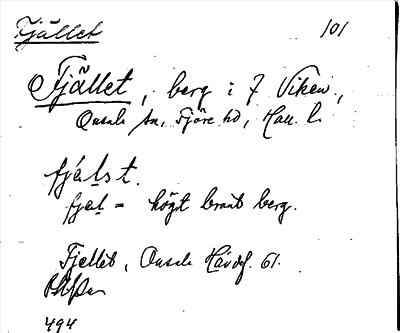 Fjället 101
Fjället, berg i 7 Viken,
Onsala sn, Fjäre hd, Hall. l.
fjälst.
fjäl = högt brant berg.
Fjellet, Onsala Hävdf. 61.
494